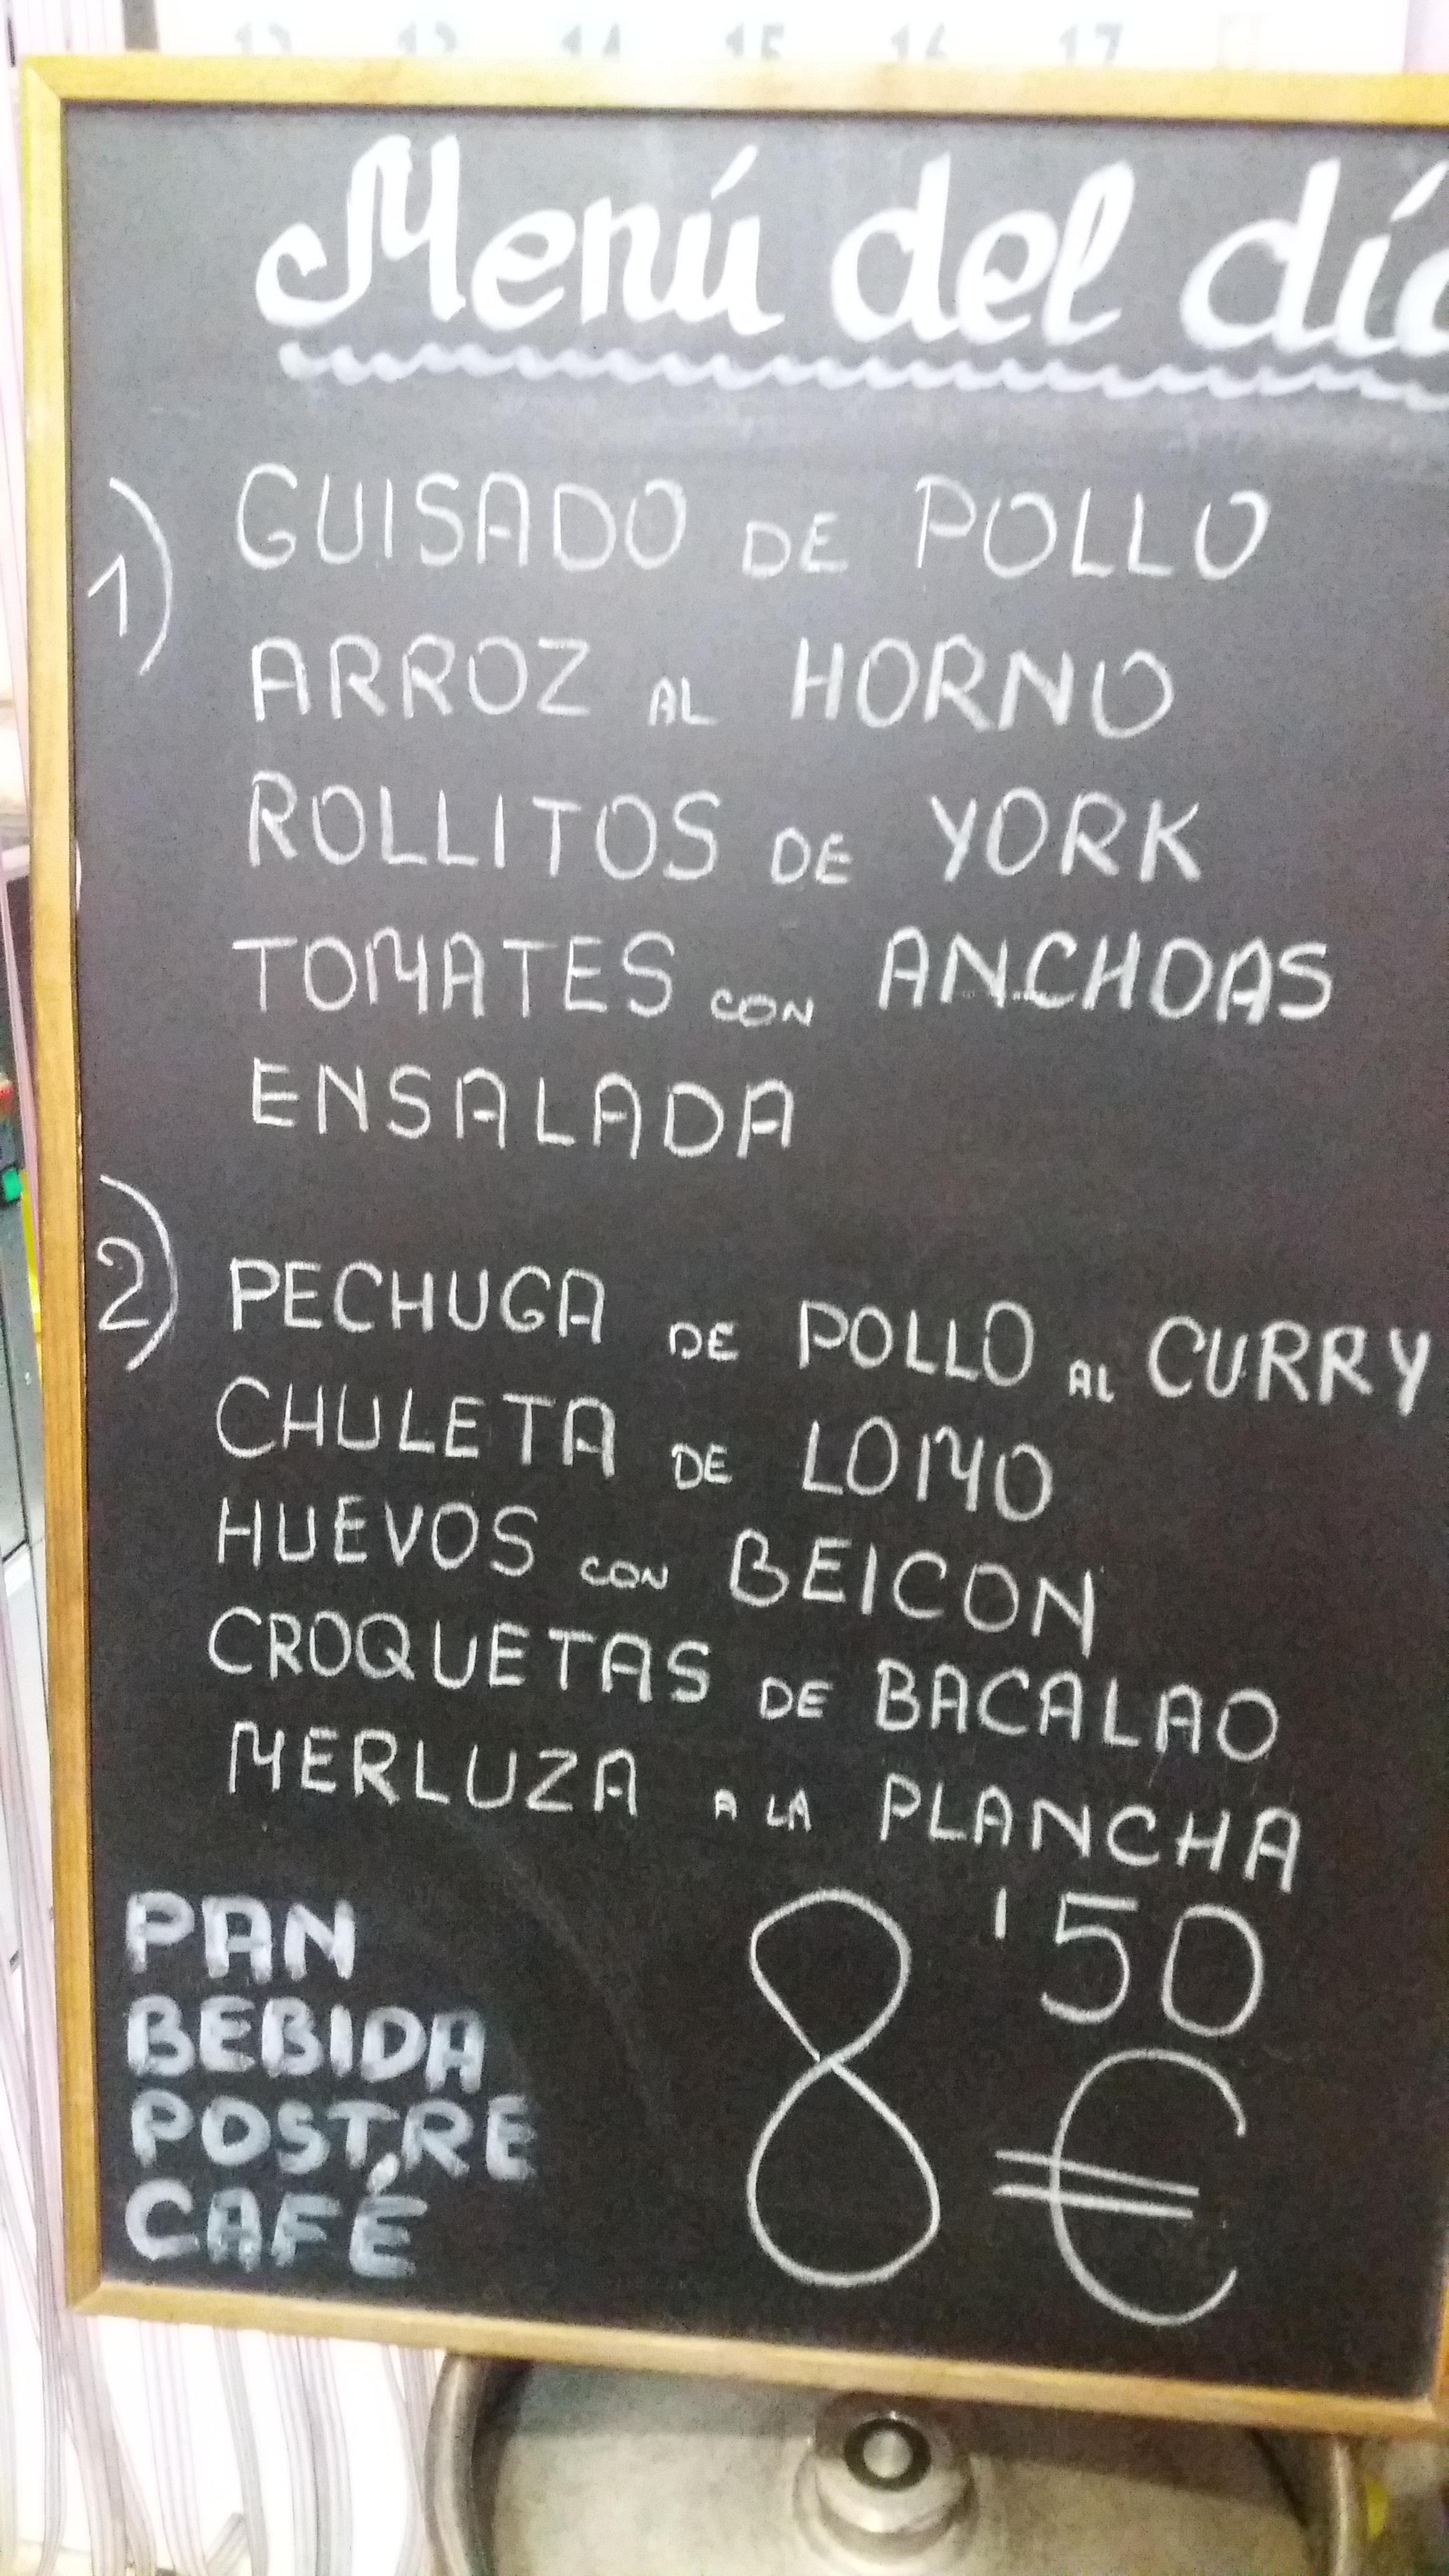 12 13 14 15 16 17
Menú del día
1) GUISADO DE POLLO
ARROZ AL HORNO
ROLLITOS DE YORK
TOMATES CON ANCHOAS
ENSALADA
2) PECHUGA DE POLLO AL CURRY
CHULETA DE LOMO
HUEVOS CON BEICON
CROQUETAS DE BACALAO
MERLUZA A LA PLANCHA
PAN
BEBIDA
POSTRE
CAFÉ
8'50
€